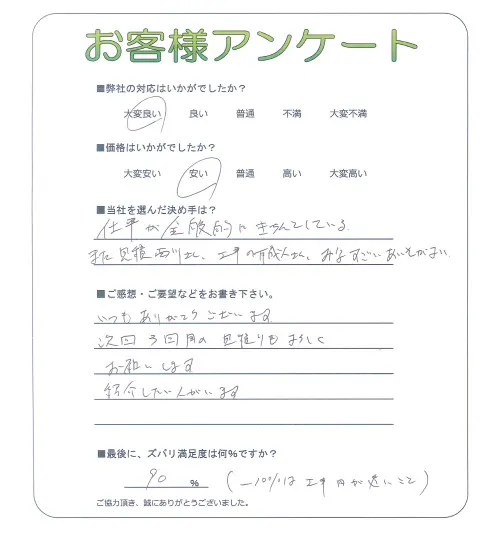 お客様アンケート
■弊社の対応はいかがでしたか？
大変良い 良い 普通 不満 大変不満
■価格はいかがでしたか？
大変安い 安い 普通 高い 大変高い
■当社を選んだ決め手は？
仕事が全般的にきちんとしている。
また見積西川さん、工事の有成さん、みなすごいあいそがよい
■ご感想・ご要望などをお書き下さい。
いつもありがとうございます
次回3回目の見積りもよろしく
お願いします
紹介したい人がいます
■最後に、ズバリ満足度は何％ですか？
90 ％ (-10%は工事日が遠いこと)
ご協力頂き、誠にありがとうございました。